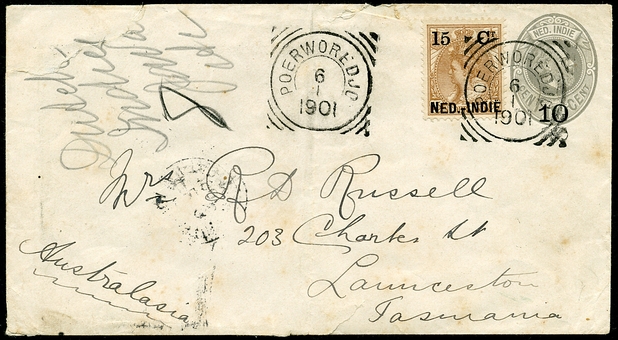 15 Ct
NED. INDIE
NED.-INDIE
10
CENT
POERWOREDJO
6
1
1901
POERWOREDJO
6
1
1901
Mrs R D Russell
203 Charles St
Launceston
Tasmania
Australasia